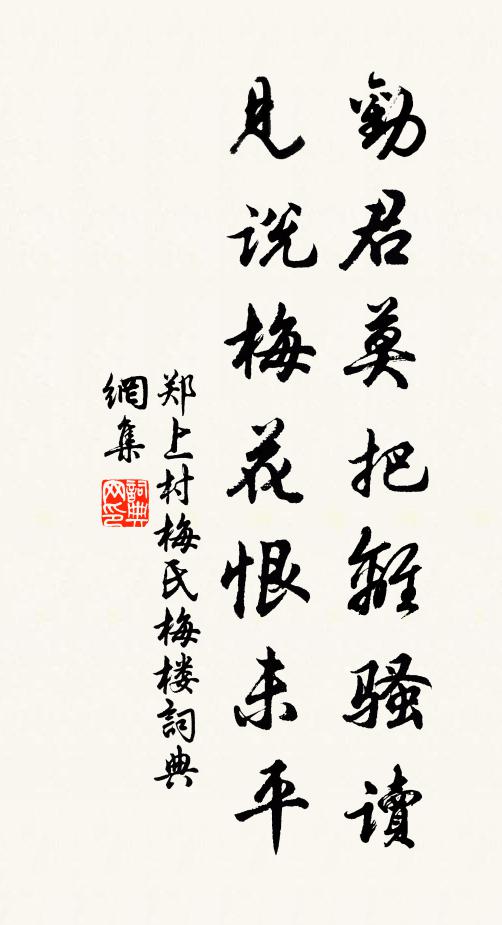 勸君莫把離騷讀
見说梅花恨未平
郑上村梅氏梅楼詞典
網集
詞典
网印